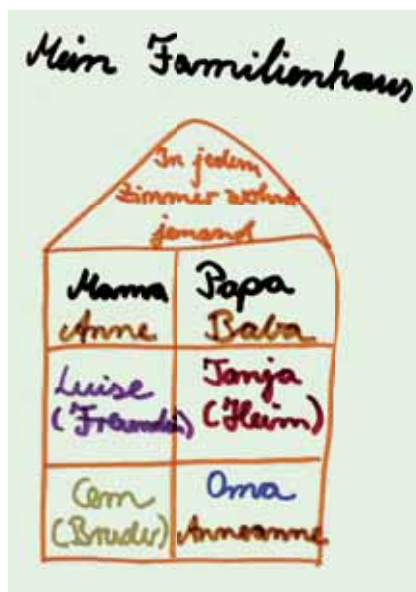 Mein Familienhaus
In jedem
Zimmer wohnt
jemand
Mama
Anne
Papa
Baba
Luise
(Freundin)
Tanja
(Heim)
Cem
(Bruder)
Oma
Anneanne